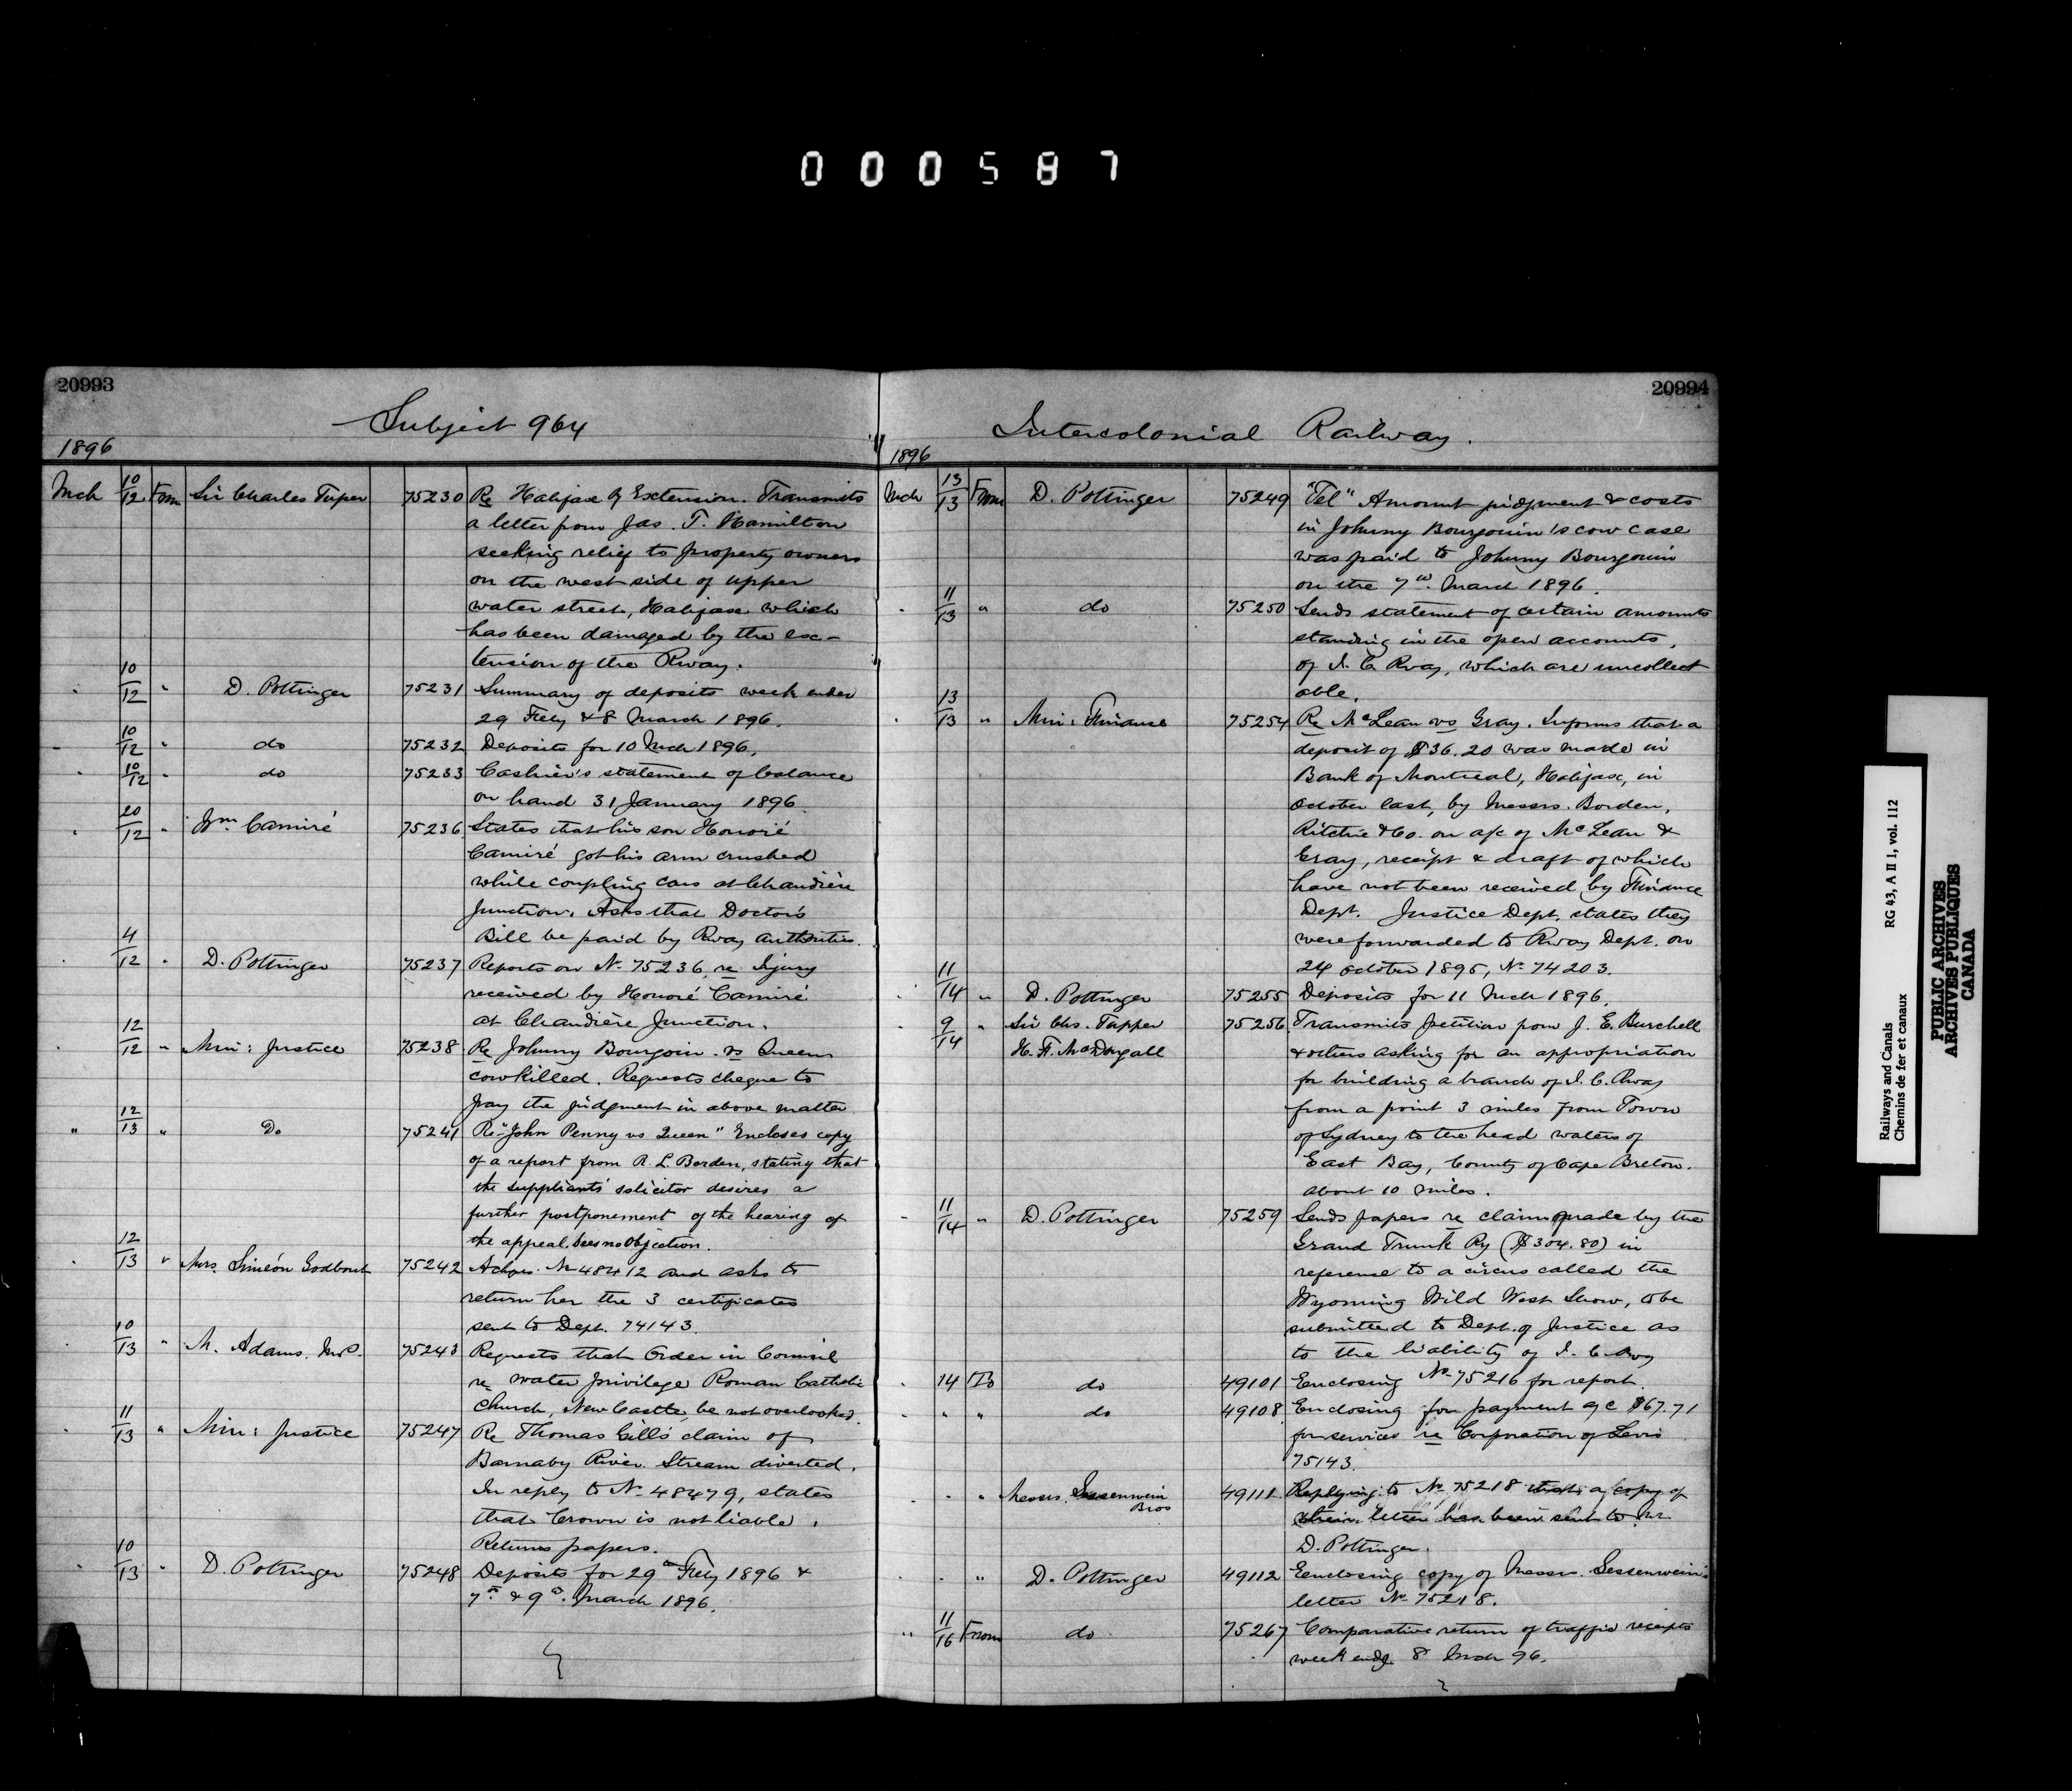 000587
20993
Subject 964
1896
Mch 10/12 From Sir Charles Tuper 75230 Re Halifax Ry Extension. Transmits
a letter from Jas. T. Hamilton
seeking relief to property owners
on the west side of upper
water street, Halifax which
has been damaged by the ex-
tension of the Rway.
" 10/12 " D. Pottinger 75231 Summary of deposits week ended
29 Feby & 8 March 1896.
" 10/12 " do 75232 Deposits for 10 Mch 1896.
" 10/12 " do 75233 Cashier's statement of balance
on hand 31 January 1896
" 20/12 " Wm. Camiré 75236 States that his son Honoré
Camiré got his arm crushed
while coupling cars at Chaudière
Junction. Asks that Doctor's
Bill be paid by Rway authorities.
" 4/12 " D. Pottinger 75237 Reports on No 75236 re Injury
received by Honoré Camiré
at Chaudière Junction.
" 12/12 " Min: Justice 75238 Re Johnny Bourgoin vs Queen
cow killed. Requests cheque to
pay the judgment in above matter
" 12/13 " Do 75241 Re "John Penny vs Queen" Encloses copy
of a report from R. L. Borden, stating that
the suppliants' solicitor desires a
further postponement of the hearing of
the appeal. Sees no objection.
" 12/13 " Mrs. Siméon Godbout 75242 Ackges. No 48412 and asks to
return her the 3 certificates
sent to Dept. 74143.
" 10/13 " M. Adams. M.P. 75243 Requests that Order in Council
re water privilege Roman Catholic
Church, New Castle, be not overlooked.
" 11/13 " Min: Justice 75247 Re Thomas Gill's claim of
Barnaby River Stream diverted.
In reply to No 48479, states
that Crown is not liable.
Returns papers.
" 10/13 " D. Pottinger 75248 Deposits for 29th Feby 1896 &
7th & 9th March 1896.
20994
Intercolonial Railway.
1896
Mch 13/13 From D. Pottinger 75249 "Tel" Amount judgment & costs
in Johnny Bourgouin's cow case
was paid to Johnny Bourgouin
on the 7th March 1896.
" 11/13 " do 75250 Sends statement of certain amounts
standing in the open accounts,
of I. C. Rway, which are uncollect
able.
" 13/13 " Min: Finance 75254 Re McLean vs Gray. Informs that a
deposit of $36.20 was made in
Bank of Montreal, Halifax, in
October last, by Messrs. Borden,
Ritchie & Co. on a/c of McLean &
Gray, receipt & draft of which
have not been received by Finance
Dept. Justice Dept. states they
were forwarded to Rway Dept. on
24 October 1895, No 74203.
" 11/14 " D. Pottinger 75255 Deposits for 11 Mch 1896.
" 9/14 " Sir Chs. Tupper 75256 Transmits petition from J. E. Burchell
H. F. McDougall & others asking for an appropriation
for building a branch of I. C. Rway
from a point 3 miles from Town
of Sydney to the head waters of
East Bay, County of Cape Breton.
about 10 miles.
" 11/14 " D. Pottinger 75259 Sends papers re claim made by the
Grand Trunk Ry ($304.80) in
reference to a circus called the
Wyoming Wild West Show, to be
submitted to Dept. of Justice as
to the liability of I. C. Rwy
" 14 To do 49101 Enclosing No 75216 for report.
" " " do 49108 Enclosing for payment a/c $67.71
for services re Corporation of Levis
75143.
" " " Messrs. Sessenwein Bros 49111 Replying to No 75218 that a copy of
their letter has been sent to Mr
D. Pottinger.
" " " D. Pottinger 49112 Enclosing copy of Messrs. Sessenwein's
letter No 75218.
" 11/16 From do 75267 Comparative return of traffic receipts
week endg 8 Mch 96.
Railways and Canals RG 43, A II 1, vol. 112
Chemins de fer et canaux
PUBLIC ARCHIVES
ARCHIVES PUBLIQUES
CANADA